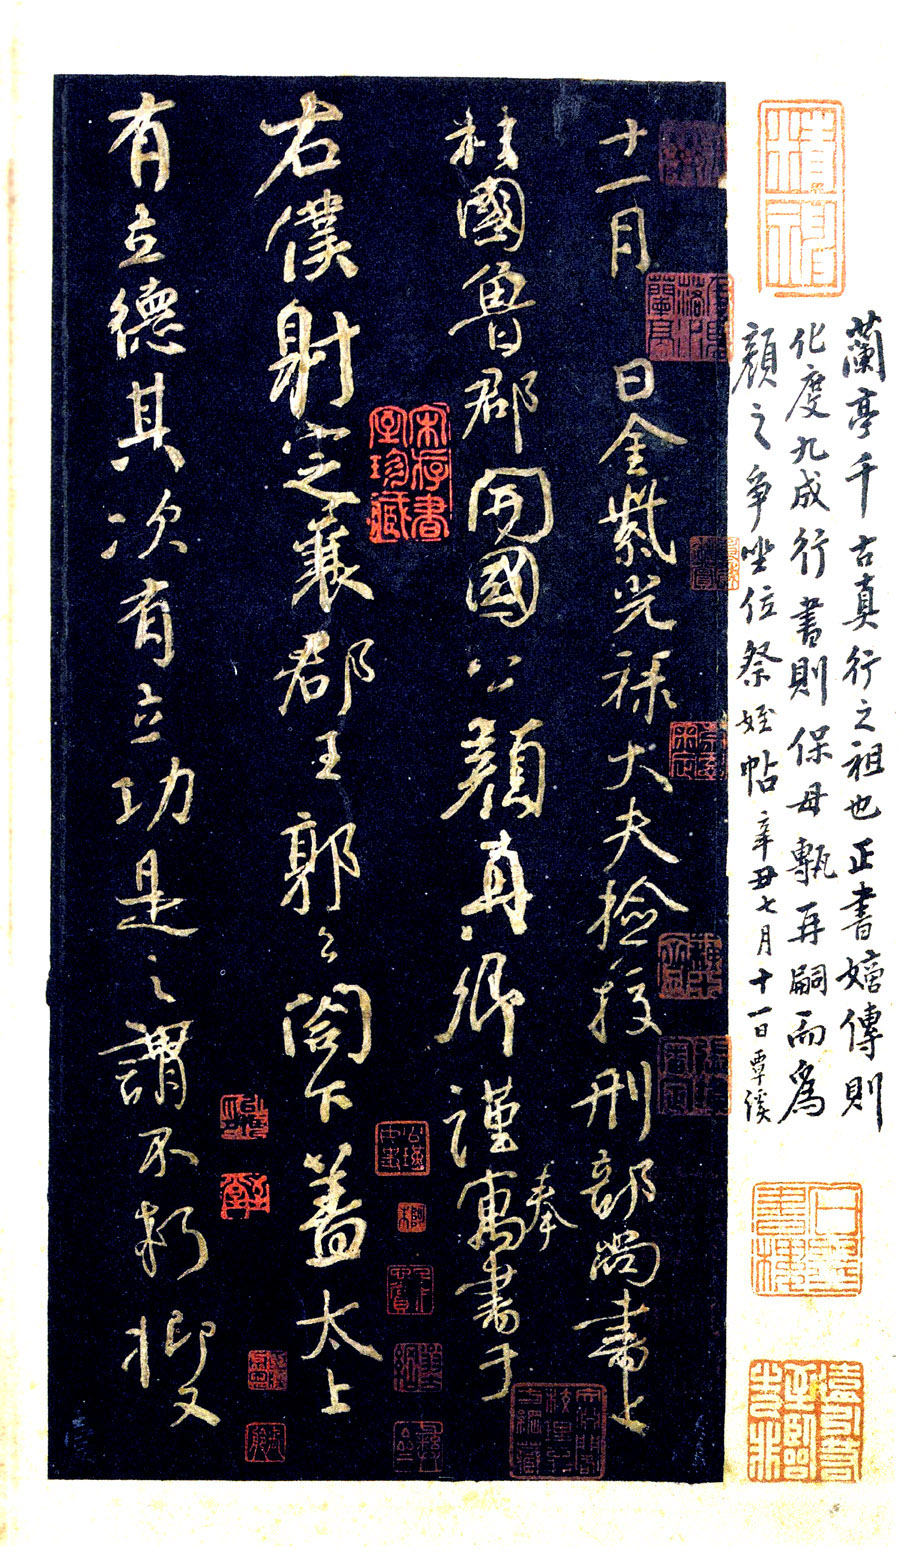 蘭亭千古真行之祖也正書嫡傳則
化度九成行書則保母甎再嗣而為
顏之爭坐位祭姪帖辛丑七月十一日覃溪
十一月 日金紫光祿大夫檢挍刑部尚書上
柱國魯郡開國公顏真卿謹奉寓書于
右僕射定襄郡王郭公閤下蓋太上
有立德其次有立功是之謂不朽抑又
宋存書
室珍藏